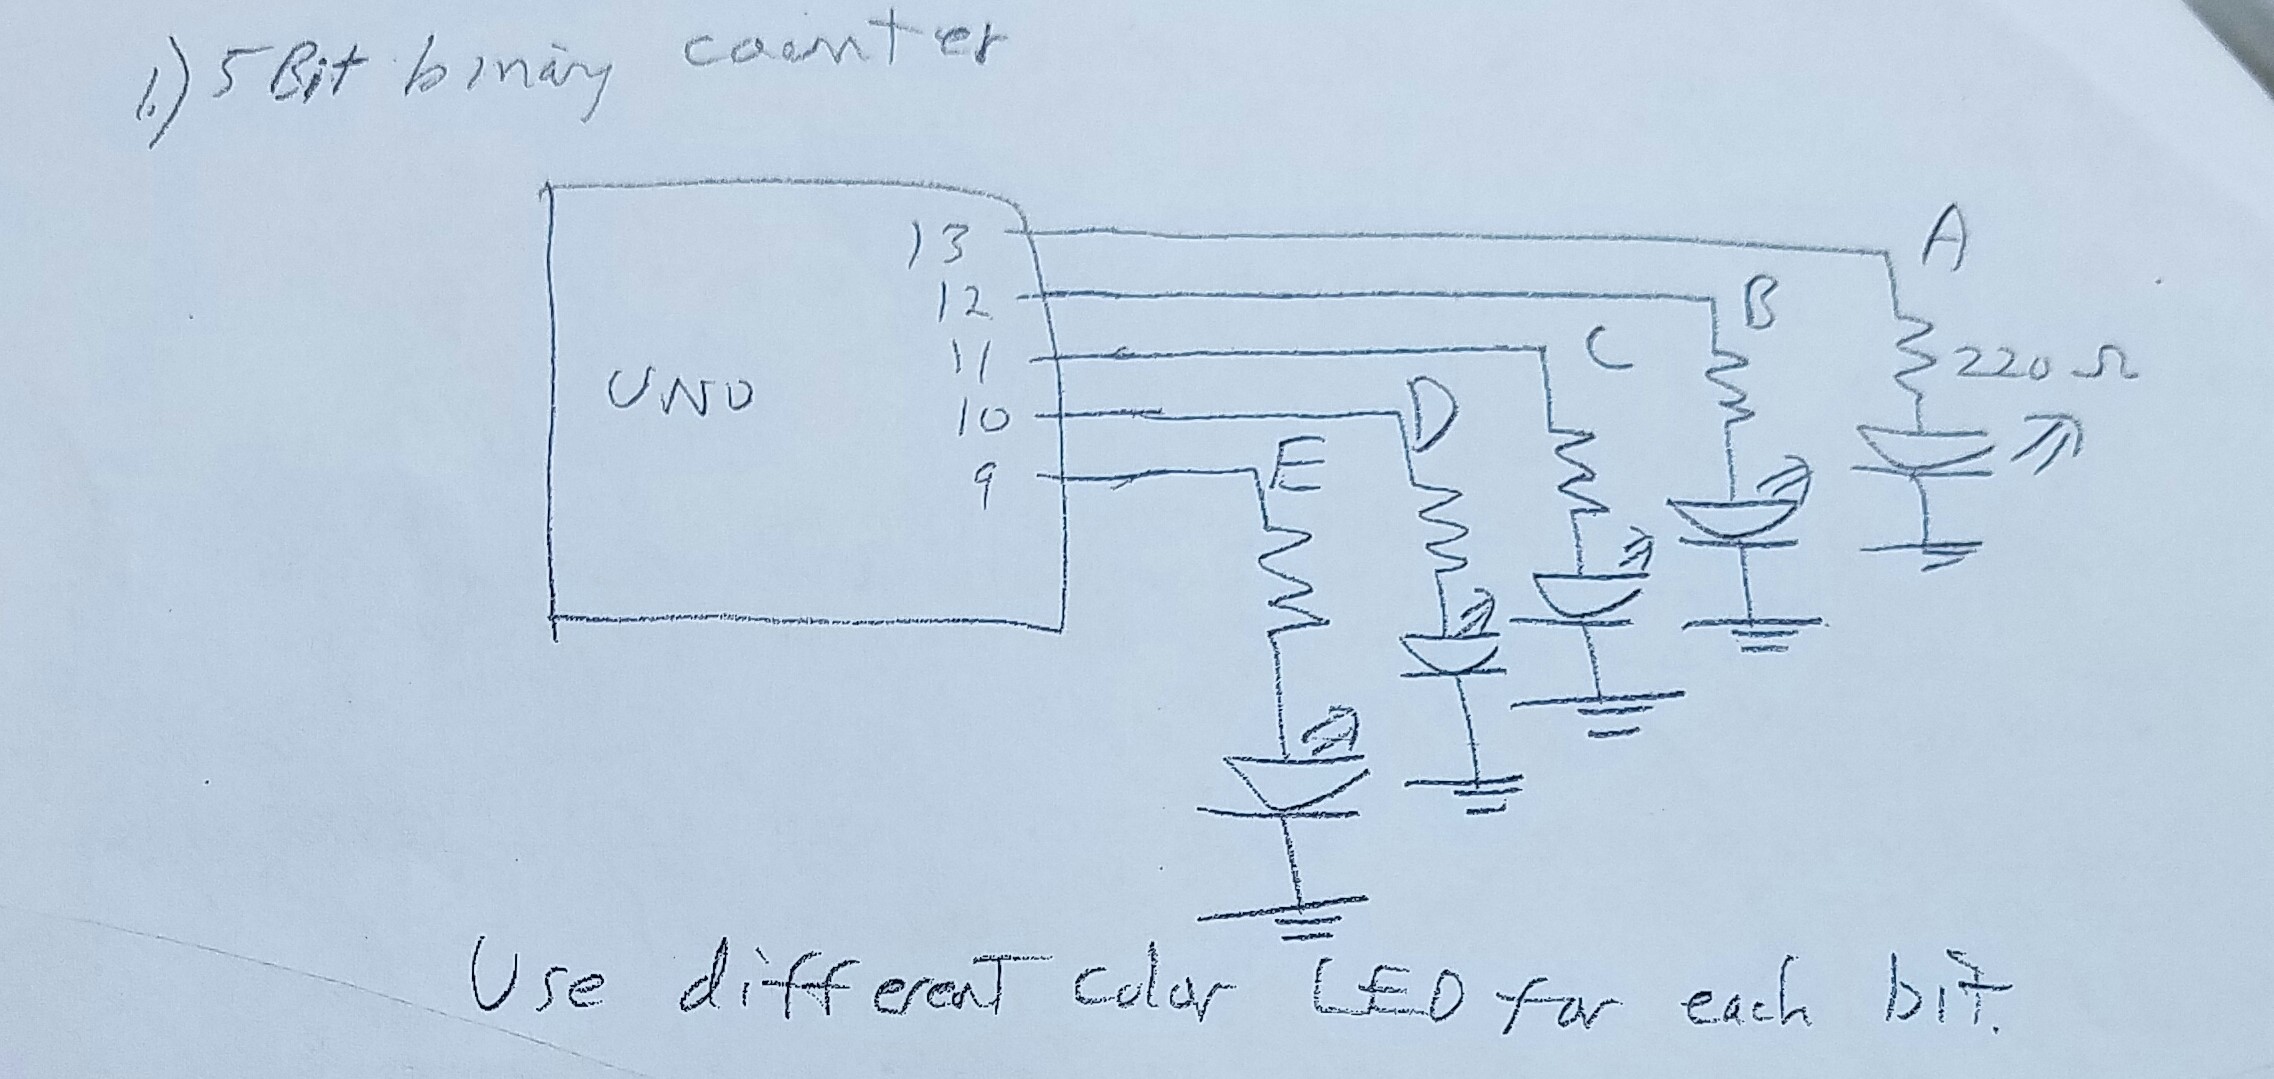 1.) 5 Bit binary counter
13 A
12 B
11 C 220 Ω
UNO
10 D
9 E
Use different color LED for each bit.